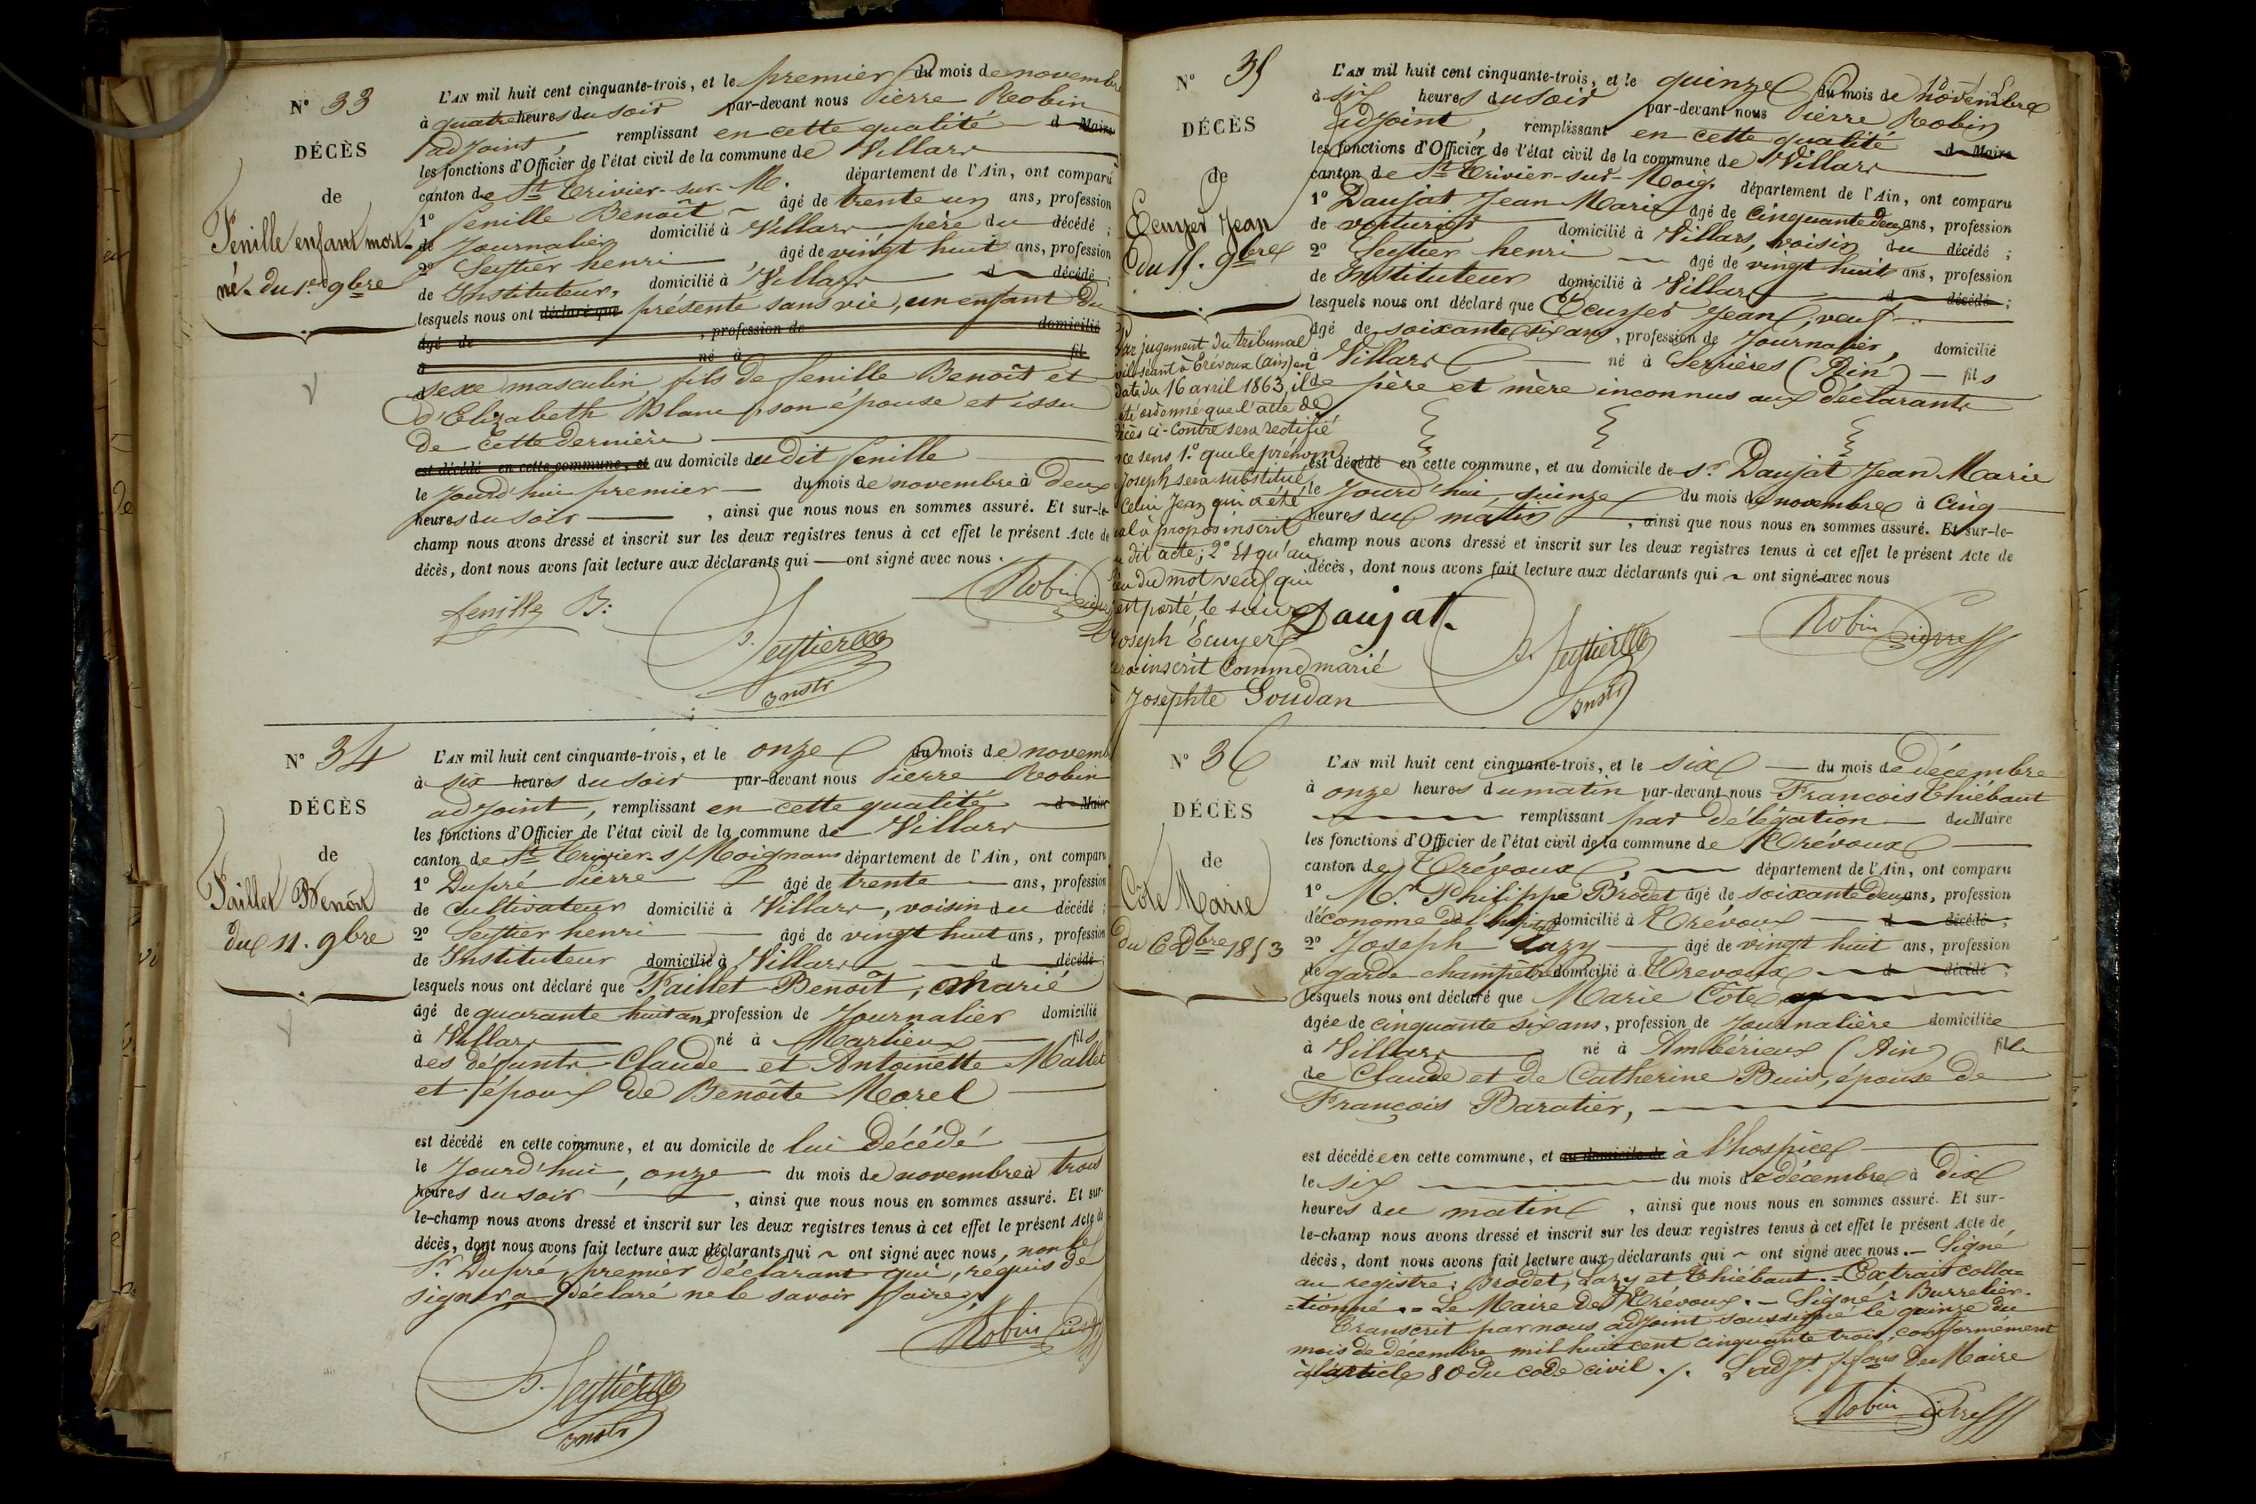 N° 33
DÉCÈS
de
Fenille enfant mort-
né. du 1er 9bre
L'AN mil huit cent cinquante-trois, et le premier du mois de novembre
à quatre heures du soir par-devant nous Pierre Robin
adjoint, remplissant en cette qualité d Maire
les fonctions d'Officier de l'état civil de la commune de Villars
canton de St Trivier-sur-M. département de l'Ain, ont comparu
1° fenille Benoît âgé de trente un ans, profession
de Journalier domicilié à Villars père du décédé ;
2° Seytier henri, âgé de vingt huit ans, profession
de Instituteur, domicilié à Villars d décédé ;
lesquels nous ont déclaré que présenté sans vie, un enfant du
âgé de , profession de domicilié
à né à fil
sexe masculin fils de fenille Benoît et
d'Elizabeth Blanc, son épouse et issu
De Cette dernière
est décédé en cette commune, et au domicile dudit fenille
le Jourd'hui premier du mois de novembre à deux
heures du soir, ainsi que nous nous en sommes assuré. Et sur-le-
champ nous avons dressé et inscrit sur les deux registres tenus à cet effet le présent Acte de
décès, dont nous avons fait lecture aux déclarants qui ont signé avec nous.
fenille B:
Robin
Seytier
instr
N° 34
DÉCÈS
de
Faillet Benoît
du 11. 9bre
L'AN mil huit cent cinquante-trois, et le onze du mois de novemb
à six heures du soir par-devant nous Pierre Robin
adjoint, remplissant en cette qualité d Maire
les fonctions d'Officier de l'état civil de la commune de Villars
canton de St Trivier s/ Moignans département de l'Ain, ont comparu
1° Dupré Pierre âgé de trente ans, profession
de Cultivateur domicilié à Villars, voisin du décédé ;
2° Seytier henri âgé de vingt huit ans, profession
de Instituteur domicilié à Villars d décédé ;
lesquels nous ont déclaré que Faillet Benoît, marié
âgé de quarante huit ans profession de Journalier domicilié
à Villars né à Marlieux fils
des défunts Claude et Antoinette Mallet
et époux de Benoîte Morel
est décédé en cette commune, et au domicile de lui Décédé
le Jourd'hui, onze du mois de novembre à trois
heures du soir, ainsi que nous nous en sommes assuré. Et sur-
le-champ nous avons dressé et inscrit sur les deux registres tenus à cet effet le présent Acte de
décès, dont nous avons fait lecture aux déclarants qui ont signé avec nous, non le
Sr. Dupré, premier déclarant qui, requis de
signer a déclaré ne le savoir faire
Robin
Seytier
instr
N° 35
DÉCÈS
de
Ecuyer Jean
du 15. 9bre
Par jugement du tribunal
civil séant à Trévoux (Ain) en
date du 16 avril 1863, il
été ordonné que l'acte de
décès ci-contre sera rectifié
ce sens 1° que le prénom
Joseph sera substitué
Celui Jean qui a été
mal à propos inscrit
dit acte; 2° Et qu'au
lieu du mot veuf qui
est porté, le sieur
Joseph Écuyer
sera inscrit Comme marié
à Josephte Goudan
L'AN mil huit cent cinquante-trois, et le quinze du mois de novembre
à six heures du soir par-devant nous Pierre Robin
adjoint, remplissant en cette qualité d Maire
les fonctions d'Officier de l'état civil de la commune de Villars
canton de St Trivier-sur-Moig. département de l'Ain, ont comparu
1° Daujat Jean Marie âgé de Cinquante deux ans, profession
de voiturier domicilié à Villars, voisin du décédé ;
2° Seytier henri âgé de vingt huit ans, profession
de Instituteur domicilié à Villars d décédé ;
lesquels nous ont déclaré que Ecuyer Jean, veuf
âgé de soixante six ans, profession de Journalier, domicilié
à Villars né à Serrières (Ain) fils
de père et mère inconnus aux déclarants
est décédé en cette commune, et au domicile de Sr Daujat Jean Marie
le Jourd'hui, quinze du mois de novembre à Cinq
heures du matin, ainsi que nous nous en sommes assuré. Et sur-le-
champ nous avons dressé et inscrit sur les deux registres tenus à cet effet le présent Acte de
décès, dont nous avons fait lecture aux déclarants qui ont signé avec nous
Daujat.
Seytier
Instr
Robin Pierre
N° 36
DÉCÈS
de
Côte Marie
du 6 Dbre 1853
L'AN mil huit cent cinquante-trois, et le six du mois de décembre
à onze heures du matin par-devant nous François Thiébaut
remplissant par délégation du Maire
les fonctions d'Officier de l'état civil de la commune de Trévoux
canton de Trévoux, département de l'Ain, ont comparu
1° Mr. Philippe Brodet âgé de soixante deux ans, profession
d'économe de l'hôpital domicilié à Trévoux d décédé ;
2° Joseph Lazy âgé de vingt huit ans, profession
de garde-champêtre domicilié à Trevoux d décédé ;
lesquels nous ont déclaré que Marie Côte
âgée de cinquante six ans, profession de Journalière domiciliée
à Villars né à Ambérieux (Ain) fille
de Claude et de Catherine Buis, épouse de
François Baratier,
est décédée en cette commune, et au domicile de à l'hospice
le six du mois de décembre à Dix
heures du matin, ainsi que nous nous en sommes assuré. Et sur-
le-champ nous avons dressé et inscrit sur les deux registres tenus à cet effet le présent Acte de
décès, dont nous avons fait lecture aux déclarants qui ont signé avec nous. - Signé
au registre: Brodet, Lazy et Thiébaut. - Extrait colla=
=tionné. - Le Maire de Trévoux. - Signé: Burrelier.
Transcrit par nous adjoint soussigné le quinze du
mois de décembre mil huit cent cinquante trois, conformément
à l'article 80 du code civil. /. L'adjt f. fons de Maire
Robin Pierre